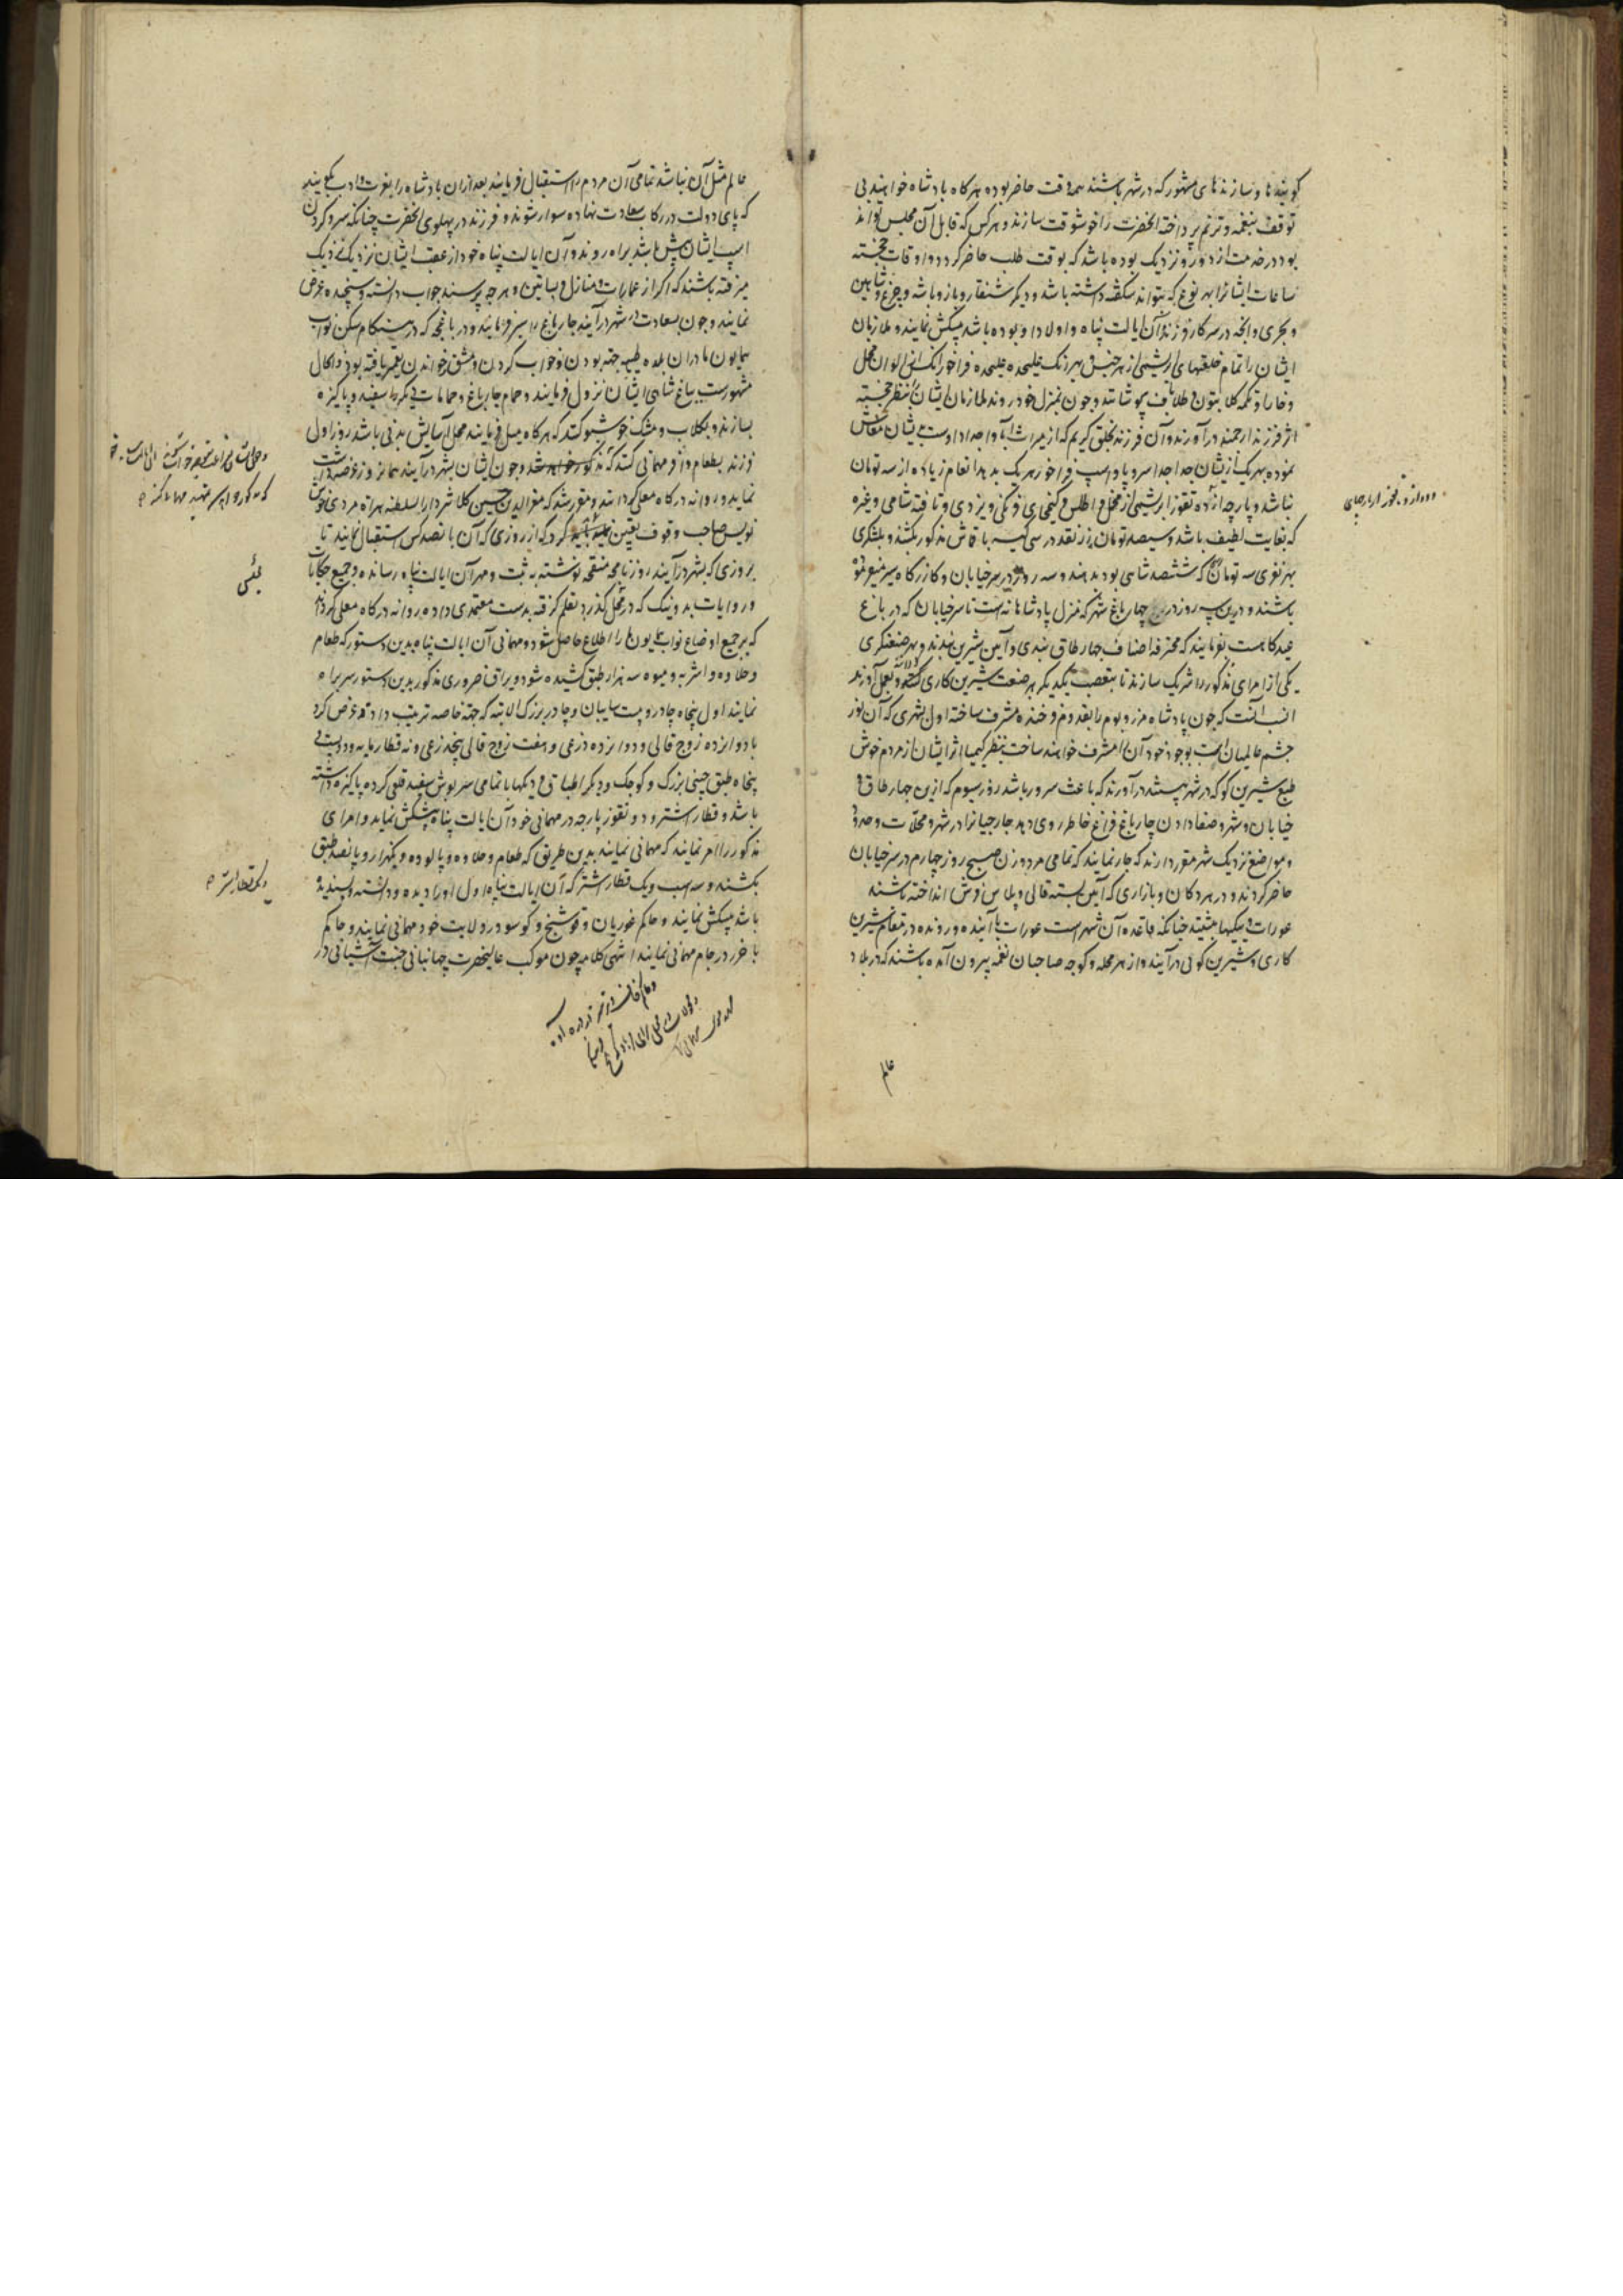 کوینده‌ها و سازنده‌های مشهور که در شهر باشند همه وقت حاضر بوده هر کاه پادشاه خواهند بی
توقف بنغمه و ترنم پرداخته آنحضرت را خوشوقت سازند و هر کس که قابل آن مجلس تواند
بود در خدمت از دور و نزدیک بوده باشد که بوقت طلب حاضر کردد و اوقات خجسته
ساعات ایشانرا بهر نوع که بتواند شکفته داشته باشد و دیکر شنقار و باز و باشه و چرغ و شاهین
و بحری و آنچه در سرکار فرزند و آن ایالت پناه و اولاد او بوده باشد پیشکش نمایند و ملازمان
ایشان را تمام خلعتهای ابریشمی از هر جنس هر رنک علیحده علیحده فراخور آنکس از الوان مخمل
و خارا و تکمه کلابتون و طلاباف پوشانند و چون بمنزل خود روند ملازمان ایشان بنظر خجسته
اثر فرزند ارجمند درآورند و آن فرزند بخلق کریم که از میراث آبا و اجداد اوست بایشان معاش
نموده بهر یک از ایشان جدا جدا سروپا و اسپ فراخور هر یک بدهد انعام زیاده از سه تومان
نباشد و پارچه از ده تقوز ابریشمی از مخمل و اطلس و کیمخای فرنکی و یزدی و تافته شامی و غیره
که بغایت لطیف باشد و سیصد تومان زر نقد در سی کیسه با قماش مذکور بکشند و بلشکری
بهر نفری سه تومان که ششصد شاهی بود بدهند و سه روز در سر خیابان و کازرکاه سیر میفرموده
باشند و درین سه روز در چهارباغ شهر که منزل پادشاهانه است تا سر خیابان که در باغ
عیدکاهست بفرمایند که محترفه اصناف چهارطاق بندی و آیین شیرین بندند و بهر صنعتکری
یکی از امرای مذکور را شریک سازند تا بتعصب یکدیکر هر صنعت شیرین کاری که دانند بعمل آورند
انسب آنست که چون پادشاه مرز و بوم را بقدوم فرخنده مشرف ساخته اول بشهری که آن نور
چشم عالمیان است بوجود خود آنرا مشرف خواهند ساخت بنظر کیمیا اثر ایشان از مردم خوش
طبع شیرین کو که در شهر هستند درآورند که باعث سرور باشد روز سیوم که ازین چهارطاق و
خیابان و شهر و صفا دادن چارباغ فراغ خاطر روی دهد جارچیانرا در شهر و محلات و حدود
و مواضع نزدیک شهر مقرر دارند که جار نمایند که تمامی مرد و زن صبح روز چهارم در سر خیابان
حاضر کردند و در هر دکان و بازاری که آیین بسته قالی و پلاس فرش انداخته باشند
عورات و بیکیها بنشینند چنانکه قاعده آن شهر است عورات با آینده و رونده در مقام شیرین
کاری و شیرین کوئی درآیند و از هر محله و کوچه صاحبان نغمه بیرون آمده باشند که در بلاد
عالم
عالم مثل آن نباشد تمامی آن مردم را استقبال فرمایند بعد ازان پادشاه را بعزت و ادب بکویند
که پای دولت در رکاب سعادت نهاده سوار شوند و فرزند در پهلوی آنحضرت چنانکه سر و کردن
اسپ ایشان پیش باشد براه روند و آن ایالت پناه خود از عقب ایشان نزدیک نزدیک
میرفته باشند که اکر از عمارات و منازل و بساتین و هر چه پرسند جواب دانسته و سنجیده عرض
نمایند و چون بسعادت بشهر درآیند چارباغ را سیر فرمایند و در باغچه که در هنکام مسکن نواب
همایون ما دران بلده طیبه جهة بودن و خواب کردن و مشق و خواندن تعمیر یافته بود و الحال
مشهورست بباغ شاهی ایشان نزول فرمایند و حمام چارباغ و حمامات دیکر را سفید و پاکیزه
بسازند و بکلاب و مشک خوشبو کنند که هر کاه میل فرمایند محل آسایش بدنی باشد روز اول
فرزند بطعام وافر مهمانی کنند که مذکور خواهد شد و چون ایشان بشهر درآیند همان روز عرضه داشت
نماید و روانه درکاه معلی کردانند و مقرر شد که معزالدین حسین کلانتر دارالسلطنه هراة مردی خوش
نویس صاحب وقوف تعیین کردکه از روزی که آن پانصد کس استقبال نمایند تا
بروزی که بشهر درآیند روزنامچه منقحه نوشته به ثبت و مهر آن ایالت پناه رسانده و جمیع حکایات
و روایات بد و نیک که در مجلس کذرد بقلم کرفته بدست معتمدی داده روانه درکاه معلی کرداند
که بر جمیع اوضاع نواب همایون ما را اطلاع حاصل شود و مهمانی آن ایالت پناه بدین دستور که طعام
و حلاوه و اشربه و میوه سه هزار طبق کشیده شود و یراق ضروری مذکور بدین دستور سر براه
نمایند اول پنجاه چادر و بیست سایبان و چادر بزرک الاپته که جهة خاصه ترتیب داده عرض کرد
با دوازده زوج قالی دوازده ذرعی و هفت زوج قالی پنج ذرعی و نه قطار مایه و دویست و
پنجاه طبق چینی بزرک و کوچک و دیکر اطباق و دیکها با تمامی سرپوش سفید قلعی کرده پاکیزه داشته
باشد و قطار اشتر و دو تقوز پارچه در مهمانی خود آن ایالت پناه پیشکش نماید و امرای
مذکور را امر نمایند که مهمانی نمایند بدین طریق که طعام و حلاوه و پالوده و یکهزار و پانصد طبق
بکشند و سه اسب و یک قطار اشتر که آن ایالت پناه اول او را دیده و دانسته و پسندیده
باشد پیشکش نمایند و حاکم غوریان و فوشنج و کوسو در ولایت خود مهمانی نمایند و حاکم
باخرز در جام مهمانی نمایند انتهی کلامه چون موکب عالیحضرت جهانبانی جنت آشیانی در
مجلس